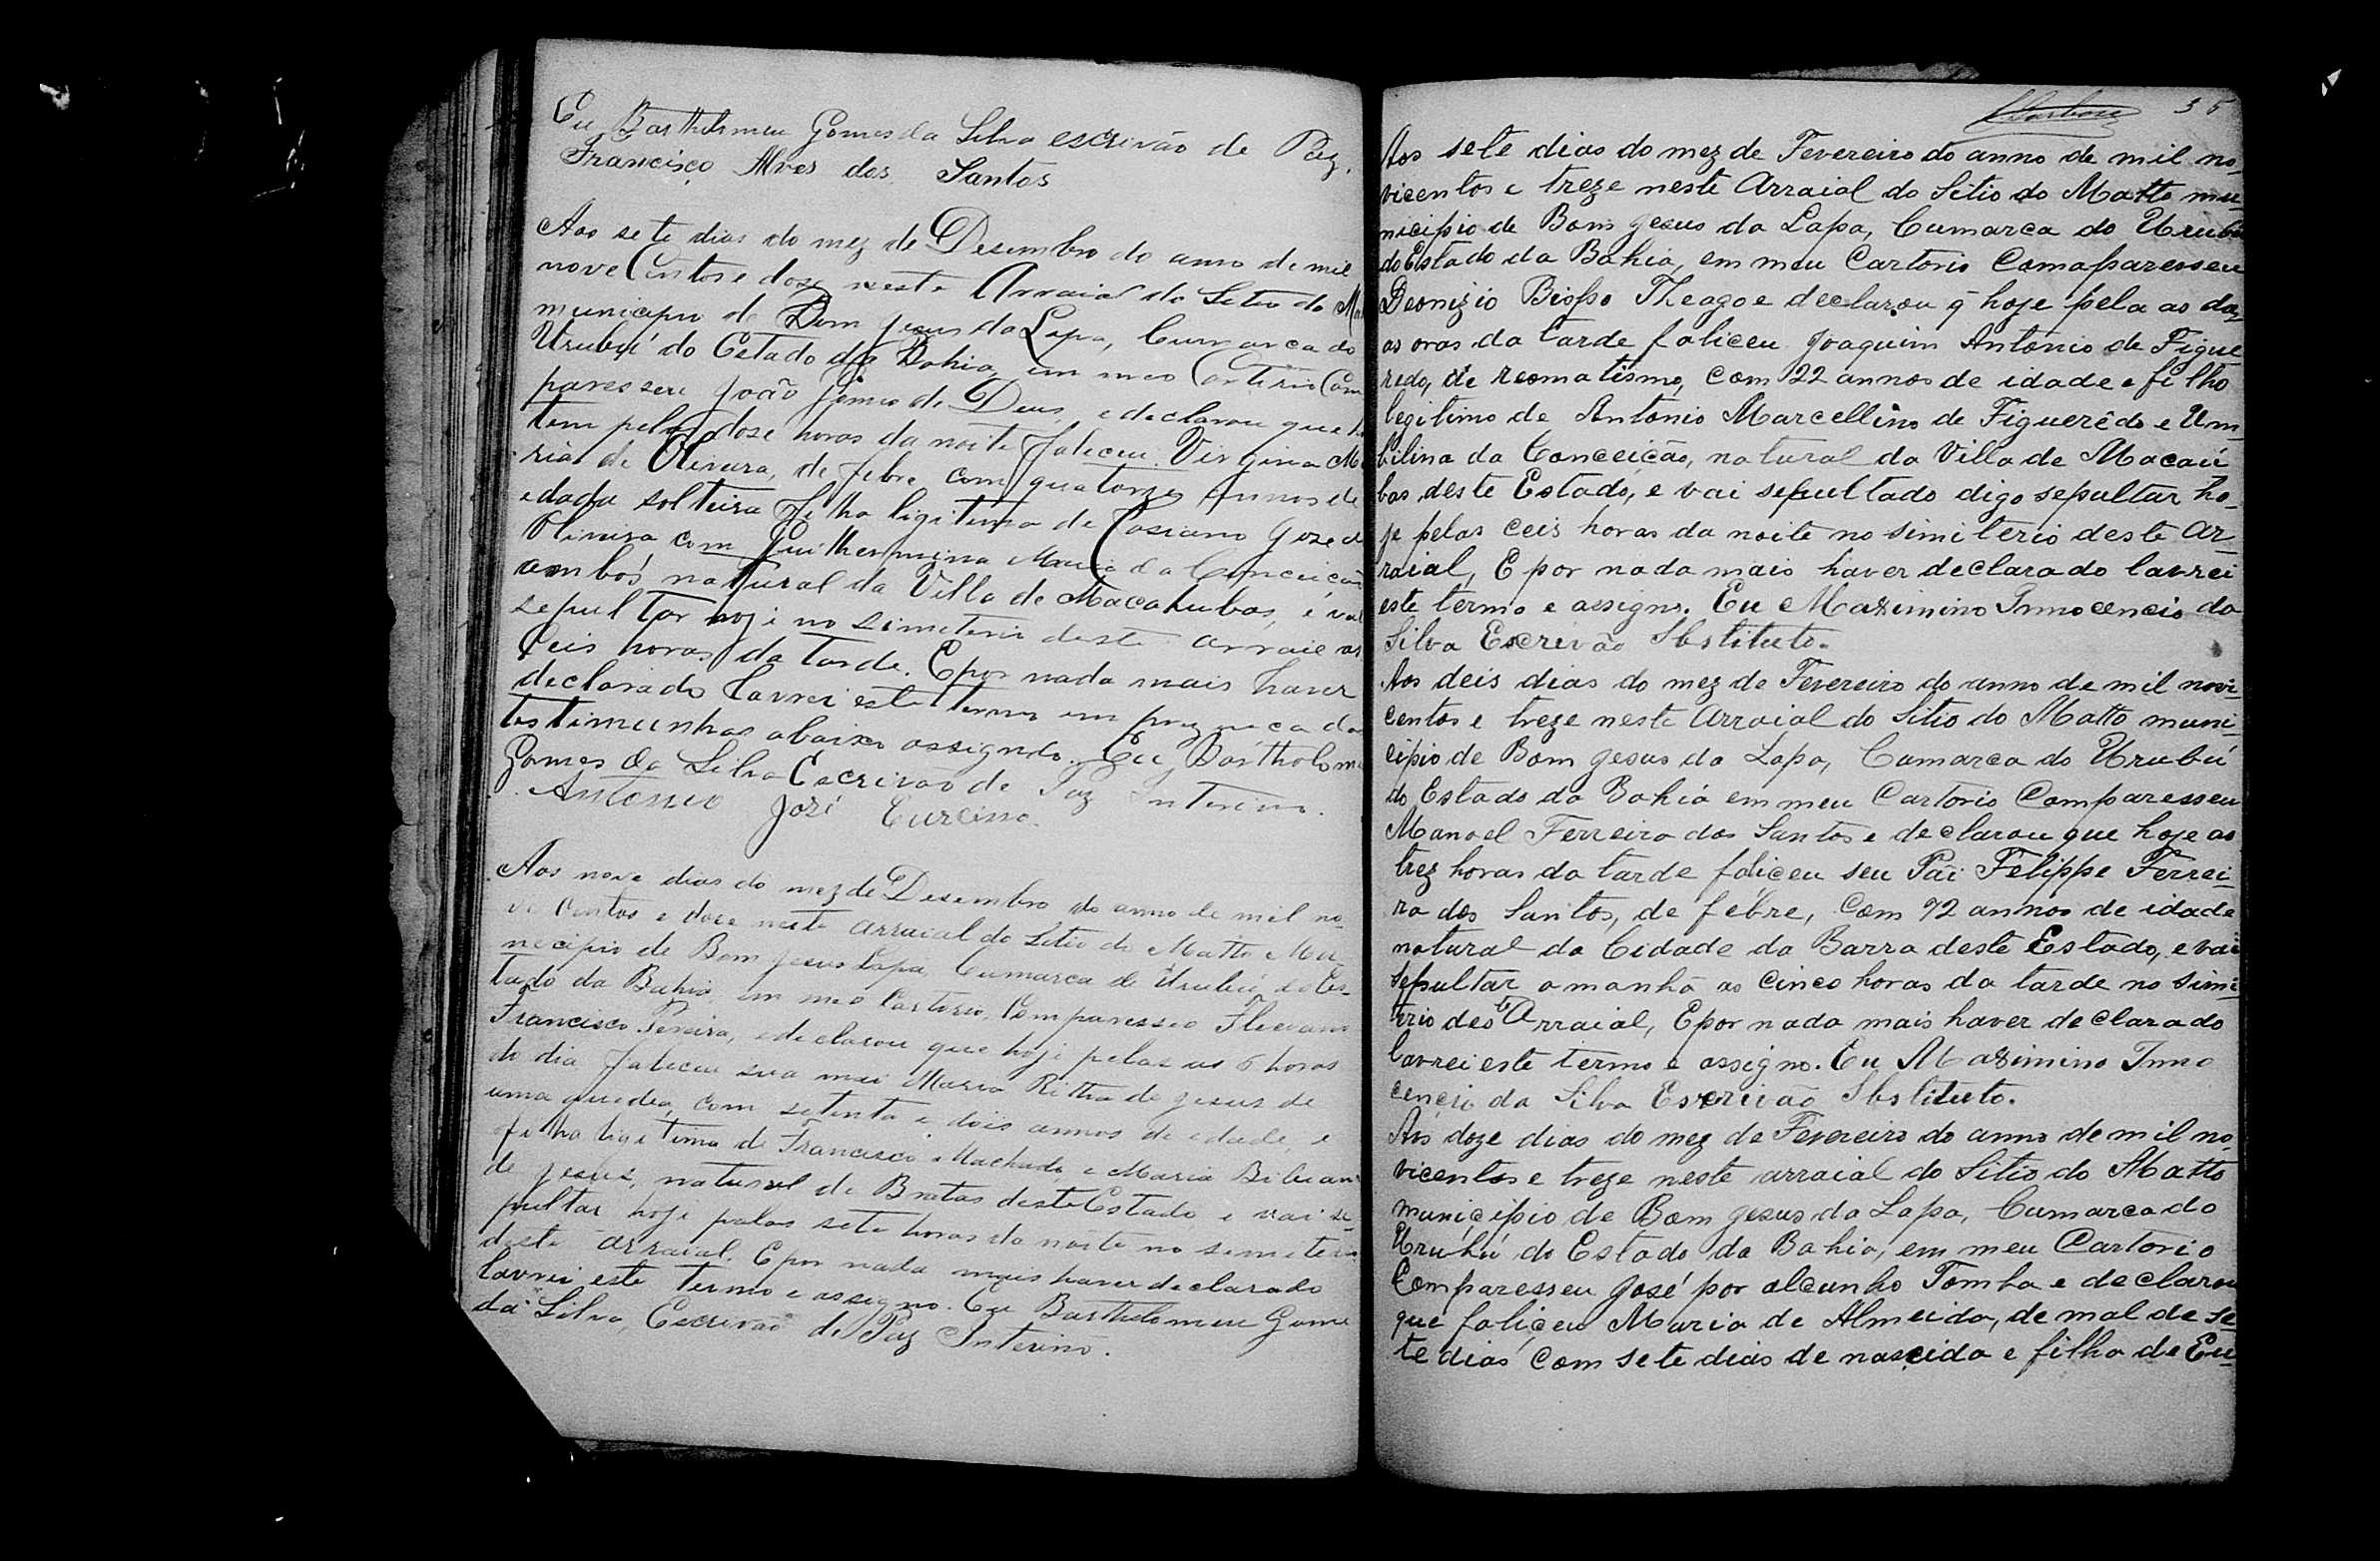 Eu Bartholomeu Gomes da Silva escrivão de Paz,
Francisco Alves dos Santos
Aos sete dias do mez de Desembro do anno de mil
nove Centos e dose neste Arraial do Sitio do Ma
municipio de Bom Jesus da Lapa, Cumarca do
Urubú do Estado da Bahia, em meu Cartorio Com
paresseu João de Deus, e declarou que
tem pelas dose horas da noite faleceu Virginia Ma
ria de Oliveira, de febre com quatorze annos de
edada solteira filha ligitima de Casiano Joze d
Oliveira com Guilhermina Maria da Conceicão
ambos natural da Villa de Macahubas, e vai
sepultar hoje no simeterio deste arraial as
Ceis horas da tarde. E por nada mais haver
declarado lavrei este termo em prezenca das
testimunhas abaixo assignado. Eu Bartholome
Gomes da Silva Escrivão de Paz Interino.
Antonio José Curcino.
Aos nove dias do mez de Desembro do anno de mil no
ve Centos e dose neste arraial do Sitio do Matto Mu
necipio de Bom Jesus Lapa, Cumarca de Urubú, do Es-
tado da Bahia, em meo Cartorio, Comparesseo
Francisco Pereira, e declarou que hoje pelas as 6 horas
do dia faleceu sua mai Maria Ritha de Jesus de
uma queda, com setenta e dois annos de edade, e
filha ligitima de Francisco Machado e Maria Bibiana
de Jesus, natural de Brotas deste Estado e vai se-
pultar hoje pelas sete horas da noite no simeterio
deste arraial. E por nada mais haver declarado
lavrei este termo e assigno. Eu Bartholomeu Gome
da Silva, Escrivão de Paz Interino.
35
Aos sete dias do mez de Fevereiro do anno de mil no-
vicentos e treze neste Arraial do Sitio do Matto mu-
nicipio de Bom Jesus da Lapa, Cumarca do Urubu
do Estado da Bahia, em meu Cartorio Comaparesseu
Deonizio Bispo Theago e declarou q̃ hoje pela as du-
as oras da tarde faliceu Joaquim Antonio de Figue
redo, de reomatismo, com 22 annos de idade e filho
legitimo de Antonio Marcellino de Figuerêdo e Um-
bilina da Conceição, natural da Villa de Macaú
bas deste Estado, e vai sepultado digo sepultar ho-
je pelas ceis horas da noite no simiterio deste ar-
raial, E por nada mais haver declarado lavrei
este termo e assigno. Eu Maximino Innocencio da
Silva Escrivão Sbstituto.
Aos deis dias do mez de Fevereiro do anno de mil novi-
centos e treze neste Arraial do Sitio do Matto muni-
cipio de Bom Jesus da Lapa, Cumarca do Urubú
do Estado da Bahia em meu Cartorio Comparesseu
Manoel Ferreira dos Santos e declarou que hoje as
trez horas da tarde faliceu seu Pai Felippe Ferrei-
ra dos Santos, de fébre, Com 92 annos de idade
natural da Cidade da Barra deste Estado, e vai
sepultar amanhã as cinco horas da tarde no simi-
terio deste Arraial, E por nada mais haver declarado
lavrei este termo e assigno. Eu Maximino Inno
cencio da Silva Escrivão Sbstituto.
Aos doze dias do mez de Fevereiro do anno de mil no-
vicentos e treze neste arraial do Sitio do Matto
municipio de Bom Jesus da Lapa, Cumarca do
Urubú do Estado da Bahia, em meu Cartorio
Comparesseu José por alcunho Tomba e declarou
que faliceu Maria de Almeida, de mal de se-
te dias com sete dias de nascida e filha de Eu-